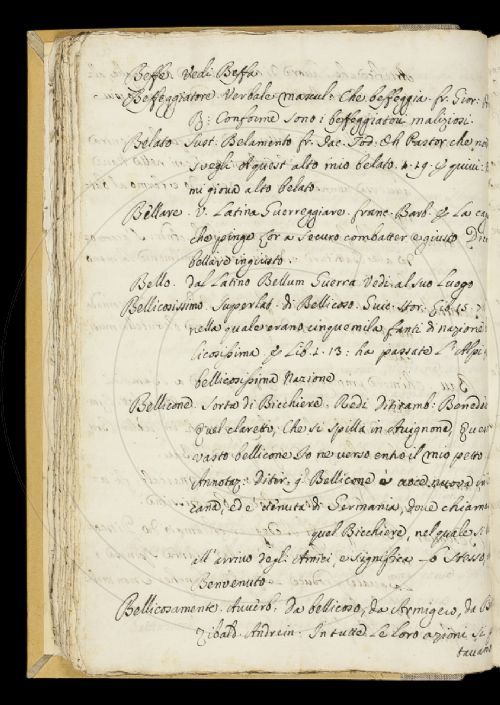 Beffe. Vedi Beffa
Beffeggiatore. Verbale mascul: Che beffeggia. fr. Gior:
B: Conforme sono i beffeggiatori maliziosi.
Belato. Sust: Belamento fr. Jac. Tod: Oh Pastor che non
svegli a quest' alto mio belato. 4. 29. & quivi:
mi giova alto belato.
Bellare. V. Latina Guerreggiare. franc. Barb. & La
che pinge Cor a securo combatter e giusto
bellare ingiusto.
Bello. dal Latino Bellum Guerra. Vedi. al suo Luogo
Bellicosissimo. Superlat. di Bellicoso. Stor:
nella quale erano cinque mila fanti di nazione
licosissima & Lib. 1. 13: ha passate L'Alpi
bellicosissima Nazione
Bellicone. Sorta di Bicchiere. Redi Ditiramb. Benedetto
Quel claretto, Che si spilla in Avignone, Questo
vasto bellicone Io ne verso entro il mio petto
Annotaz: Ditir. Bellicone è voce nuova in
cana, ed è venuta di Germania, dove chiama
quel Bicchiere, nel quale si
all'arrivo degli Amici, e significa lo stesso,
Benvenuto
Bellicosamente. Auverb. Da bellicoso, da Armigero, da
Zibald. Andrein. In tutte le loro azioni si
tavano